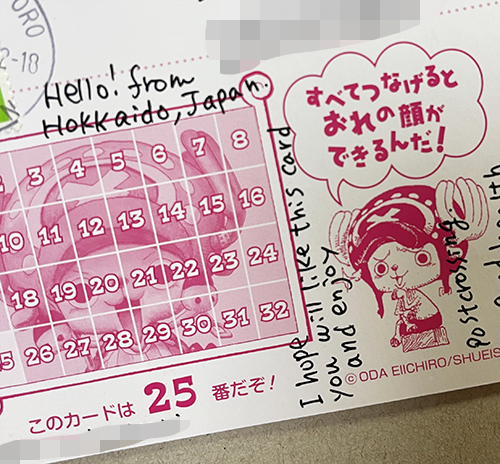 ORO
2-18
Hello! from
Hokkaido, Japan.
すべてつなげると
おれの顔が
できるんだ!
3 4 5 6 7 8
10 11 12 13 14 15 16
18 19 20 21 22 23 24
26 27 28 29 30 31 32
このカードは 25 番だぞ!
I hope this card
you will like
and enjoy
postcrossing
©ODA EIICHIRO/SHUEIS